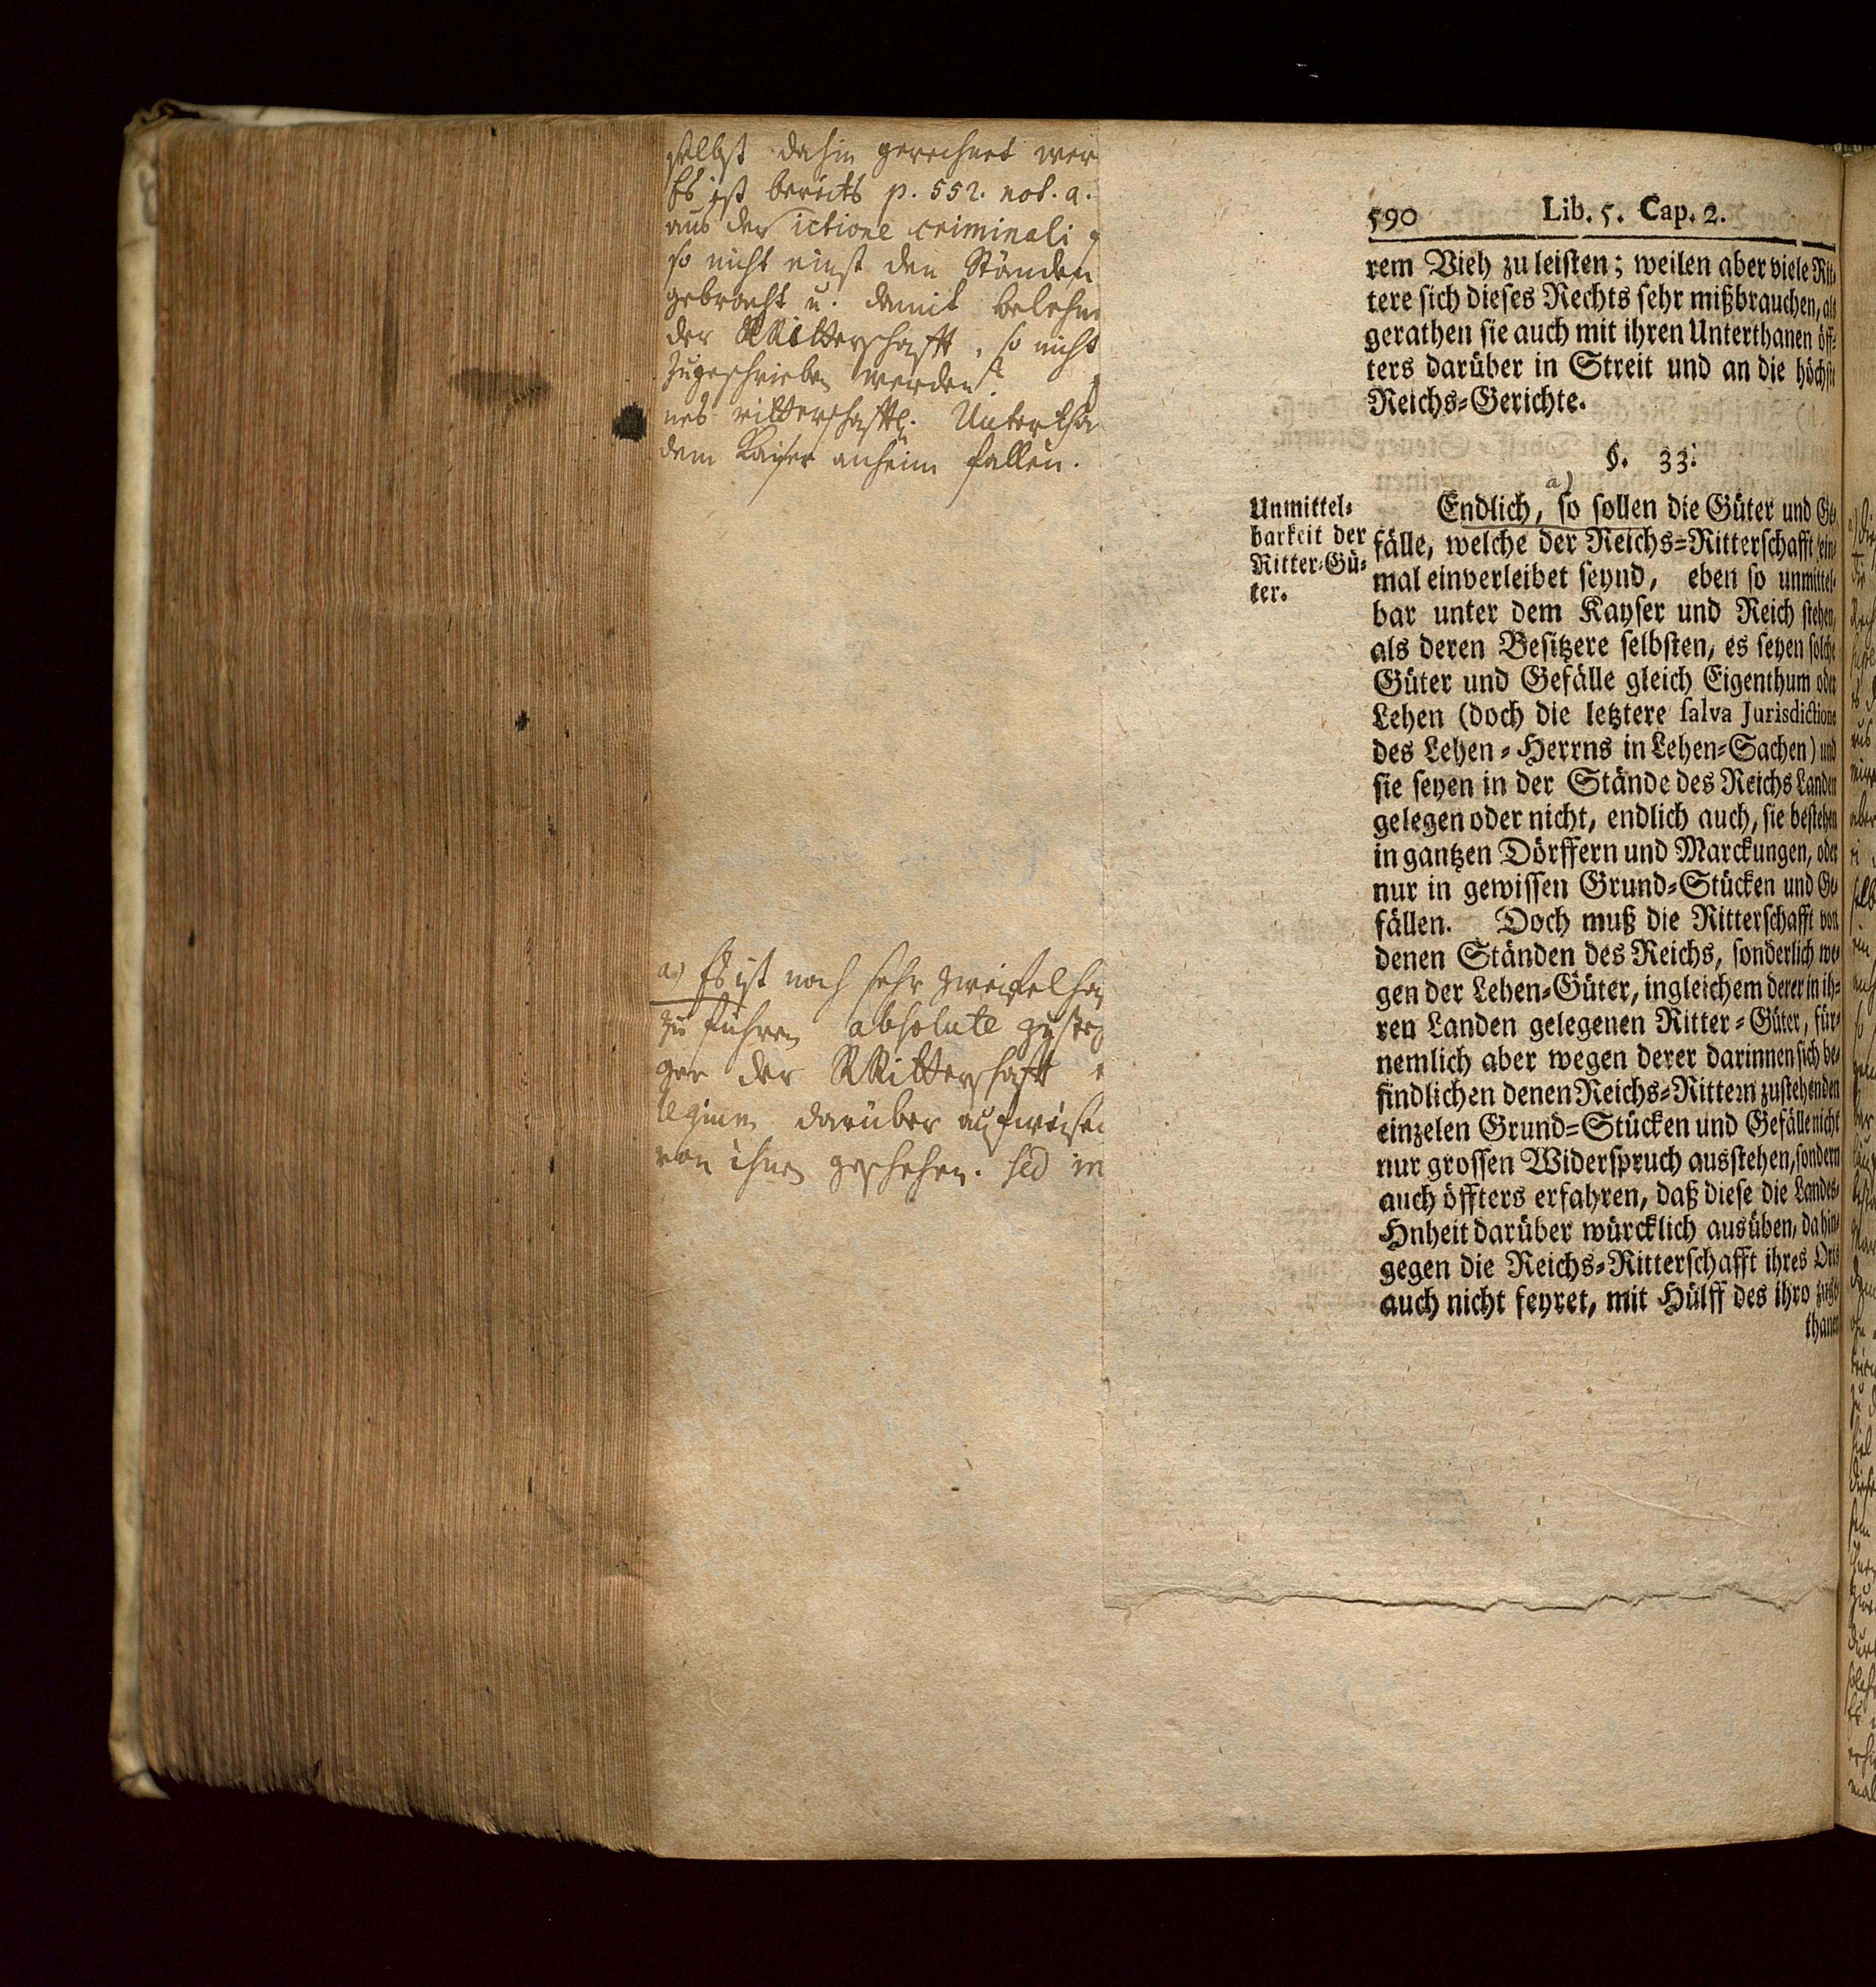 selbst dahin gerechnet wer
Es ist bereits p. 552. not. a.
aus der ictione criminali
so nicht einst den Ständen
gebracht u. damit belehn
der RRitterschafft, so nicht
zugeschrieben werden
nes ritterschafftl. Untertha
dem Kaiser anheim fallen.
a) Es ist noch sehr zweifelhaf
zu führen absolute zusteh
ger der RRitterschafft
legium darüber aufweisen
von ihnen geschehen. sed in
590 Lib. 5. Cap. 2.
rem Vieh zu leisten; weilen aber viele Rit-
tere sich dieses Rechts sehr mißbrauchen, als
gerathen sie auch mit ihren Unterthanen öff-
ters darüber in Streit und an die höchste
Reichs-Gerichte.
§. 33.
a)
Unmittel-
barkeit der
Ritter-Gü-
ter.
Endlich, so sollen die Güter und Ge-
fälle, welche der Reichs-Ritterschafft ein-
mal einverleibet seynd, eben so unmittel-
bar unter dem Kayser und Reich stehen,
als deren Besitzere selbsten, es seyen solche
Güter und Gefälle gleich Eigenthum oder
Lehen (doch die letztere salva Jurisdictione
des Lehen-Herrns in Lehen-Sachen) und
sie seyen in der Stände des Reichs Landen
gelegen oder nicht, endlich auch, sie bestehen
in gantzen Dörffern und Marckungen, oder
nur in gewissen Grund-Stücken und Ge-
fällen. Doch muß die Ritterschafft von
denen Ständen des Reichs, sonderlich we-
gen der Lehen-Güter, ingleichem derer in ih-
ren Landen gelegenen Ritter-Güter, für-
nemlich aber wegen derer darinnen sich be-
findlichen denen Reichs-Rittern zustehenden
einzelen Grund-Stücken und Gefälle nicht
nur grossen Widerspruch ausstehen, sondern
auch öffters erfahren, daß diese die Landes-
Hnheit darüber würcklich ausüben, dahin-
gegen die Reichs-Ritterschafft ihres Orts
auch nicht feyret, mit Hülff des ihro zuge-
thanen